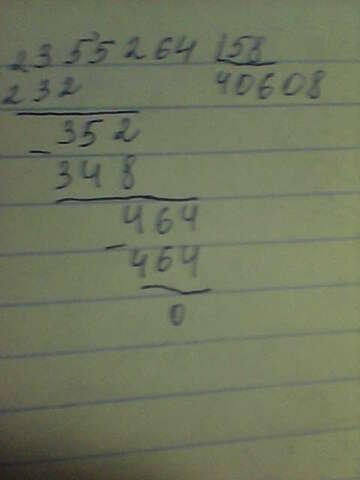 2355264 58
232 40608
352
348
464
464
0